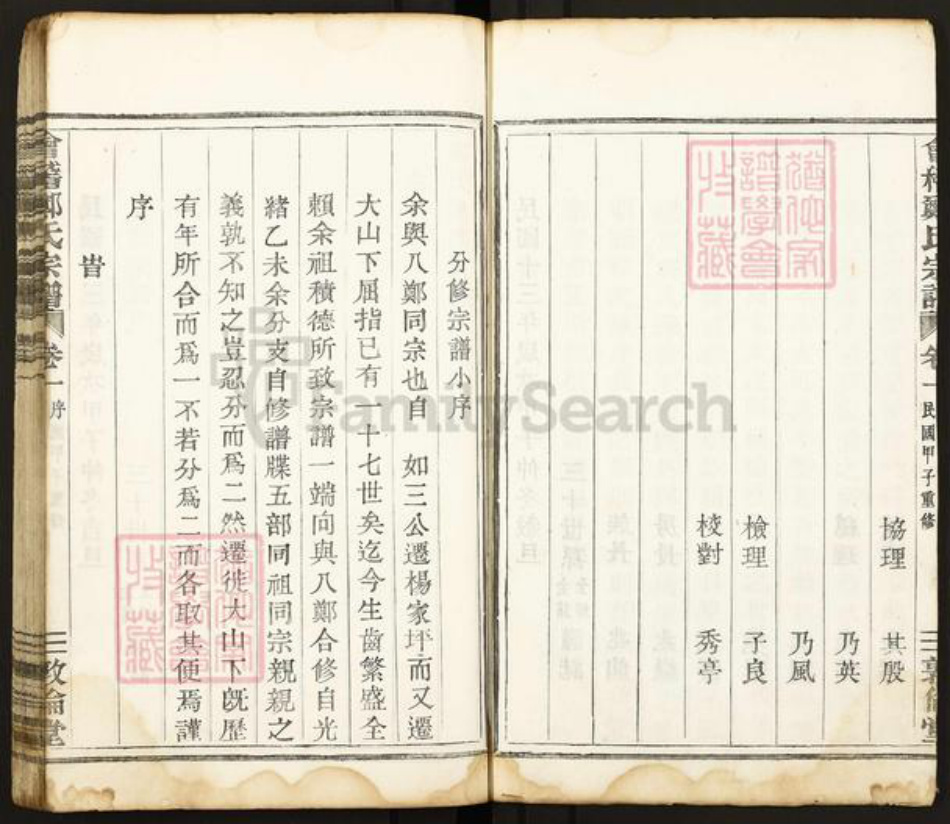 會稽鄭氏宗譜 卷一 民國甲子重修
協理 其殷
乃英
乃風
檢理 子良
校對 秀亭
分修宗譜小序
余與八鄭同宗也自 如三公遷楊家坪而又遷
大山下屈指已有一十七世矣迄今生齒繁盛全
賴余祖積德所致宗譜一端向與八鄭合修自光
緒乙未余分支自修譜牒五部同祖同宗親親之
義孰不知之豈忍分而爲二然遷徙大山下旣歷
有年所合而爲一不若分爲二而各取其便焉謹
序
旹
會稽鄭氏宗譜 卷一 序
FamilySearch